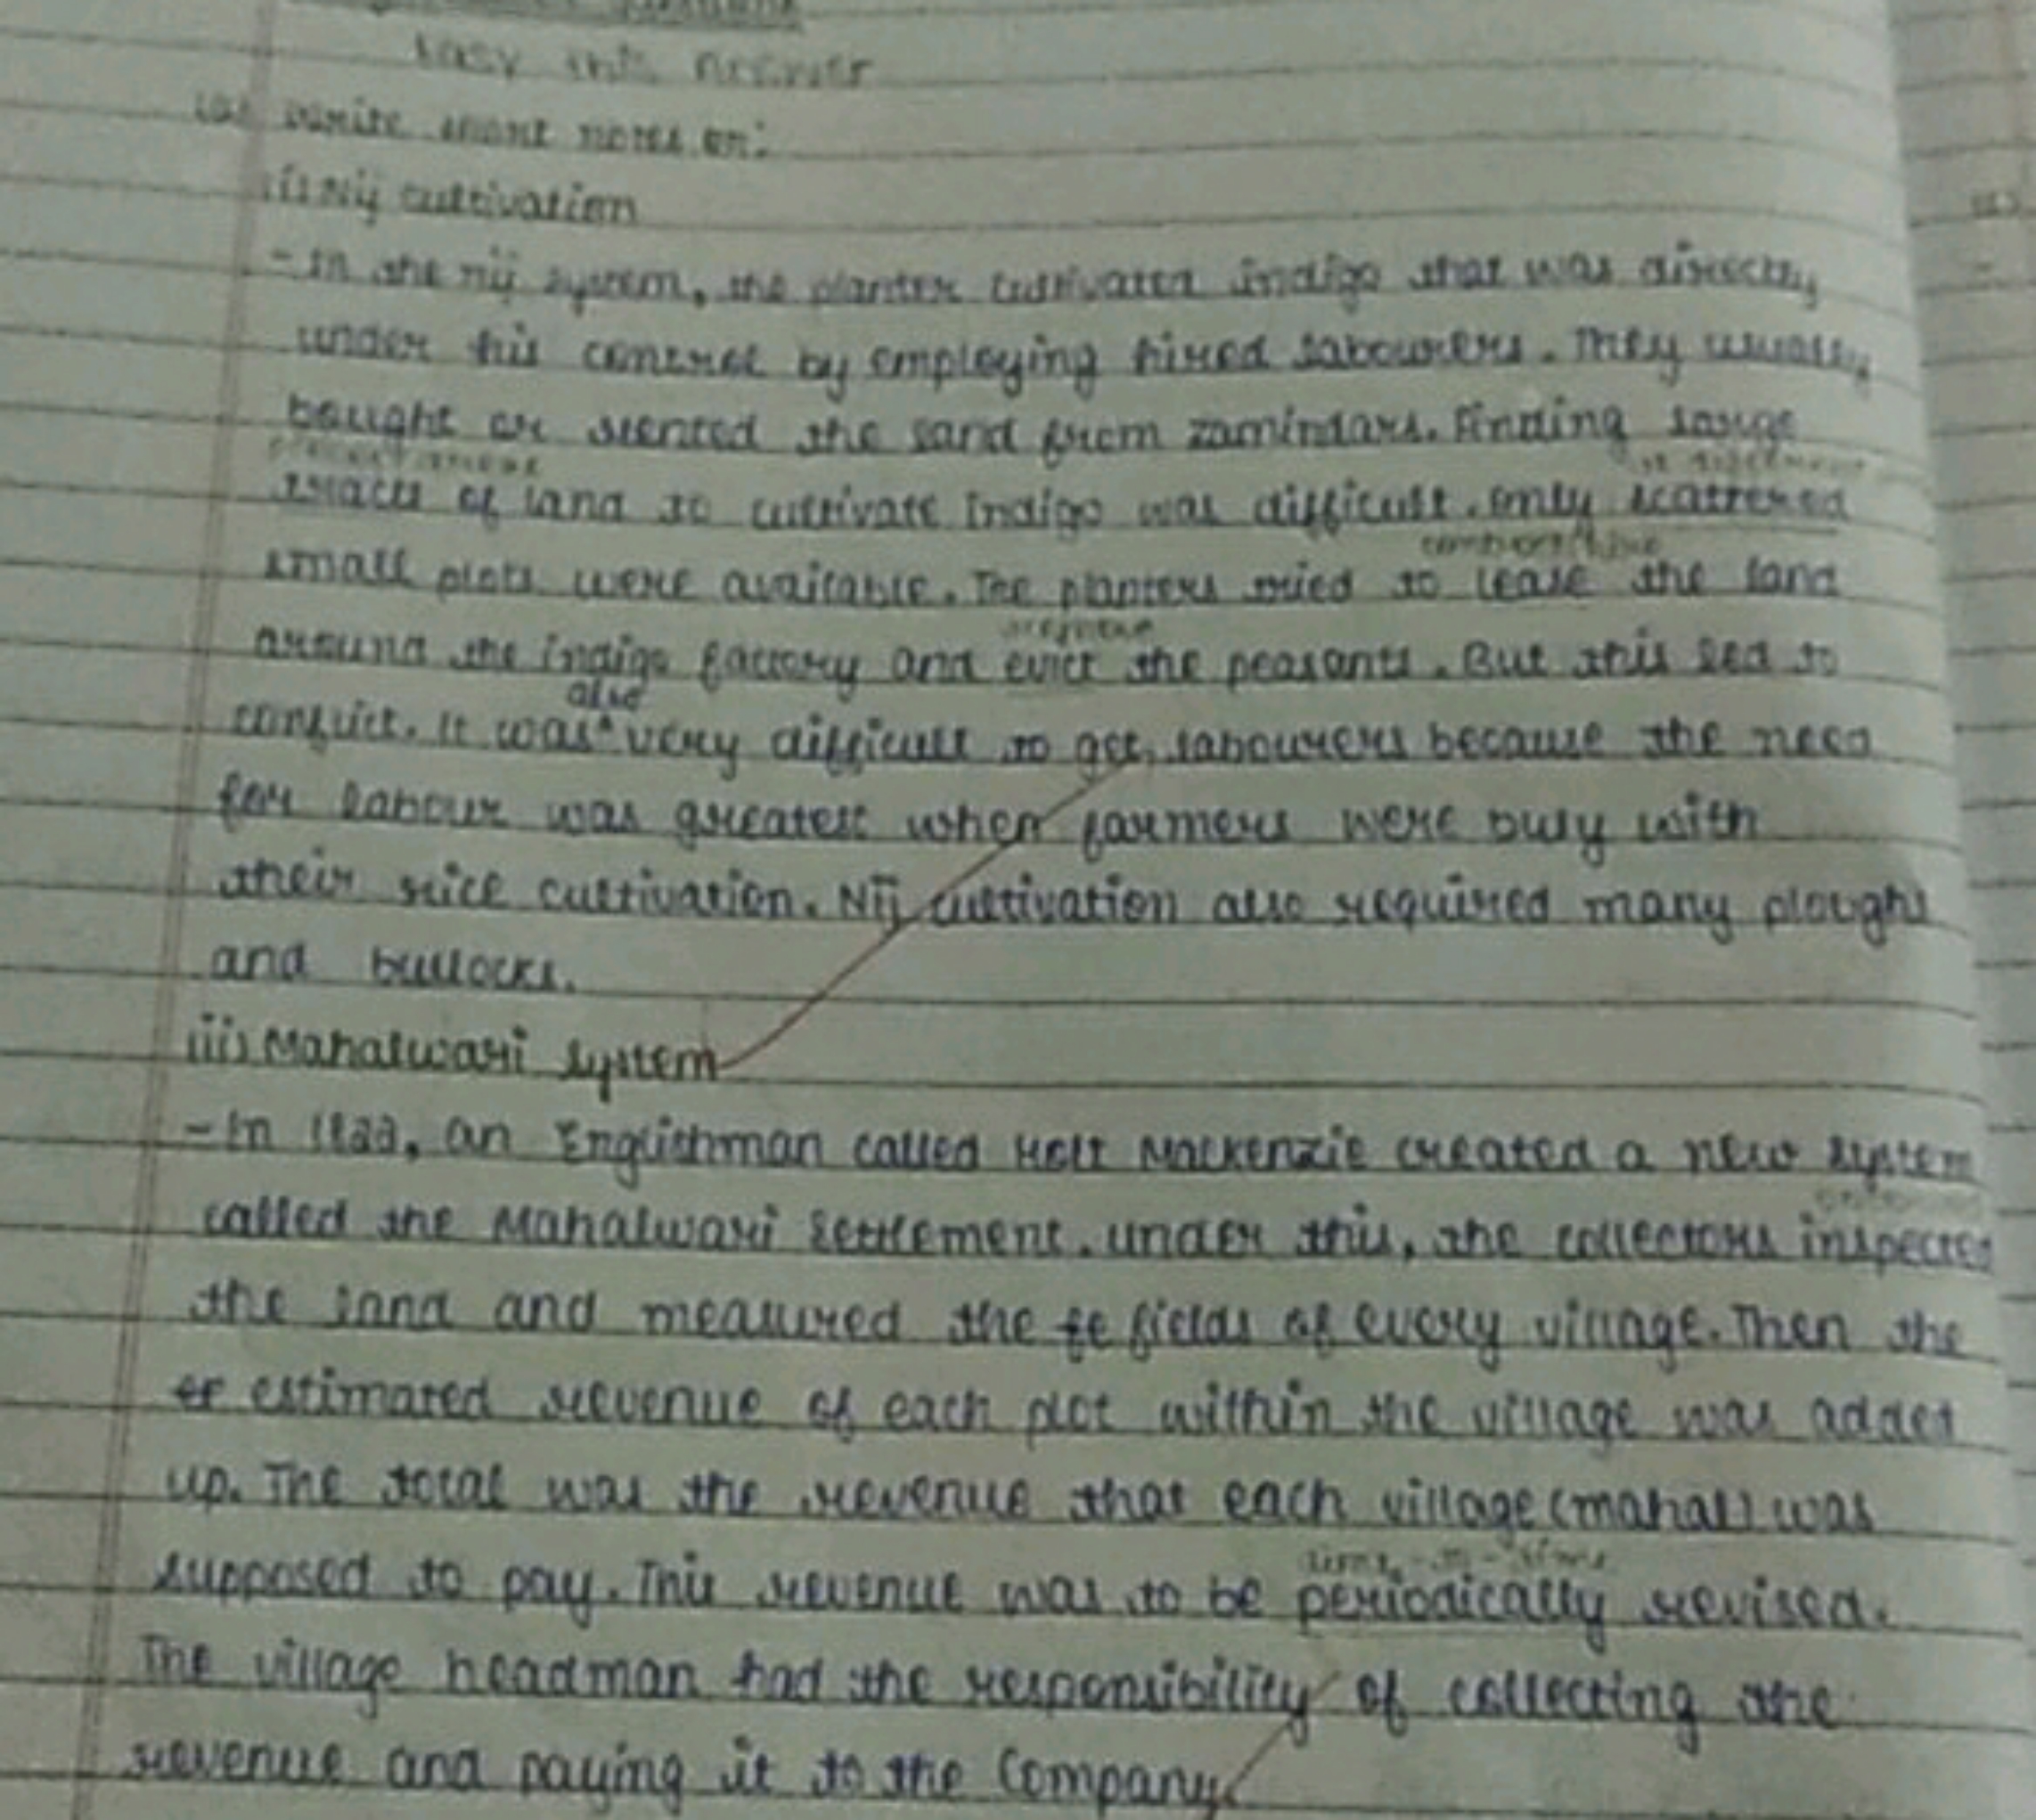 Easy with Answer
(a) Write short notes on:
(i) Nij cultivation
- In the nij system, the planter cultivated indigo that was directly
under his control by employing hired labourers. They usually
bought or rented the land from zamindars. Finding large
tracts of land to cultivate indigo was difficult. only scattered
small plots were available. The planters tried to lease the land
around the indigo factory and evict the peasants. But this led to
also
conflict. It was^ very difficult to get labourers because the need
for labour was greatest when farmers were busy with
their rice cultivation. Nij cultivation also required many ploughs
and bullocks.
(ii) Mahalwari system
- In 1822, an Englishman called Holt Mackenzie created a new system
called the Mahalwari Settlement. under this, the collectors inspected
the land and measured the fe fields of every village. Then the
er estimated revenue of each plot within the village was added
up. The total was the revenue that each village (mahal) was
time-to-time
supposed to pay. This revenue was to be periodically revised.
The village headman had the responsibility of collecting the
revenue and paying it to the Company.